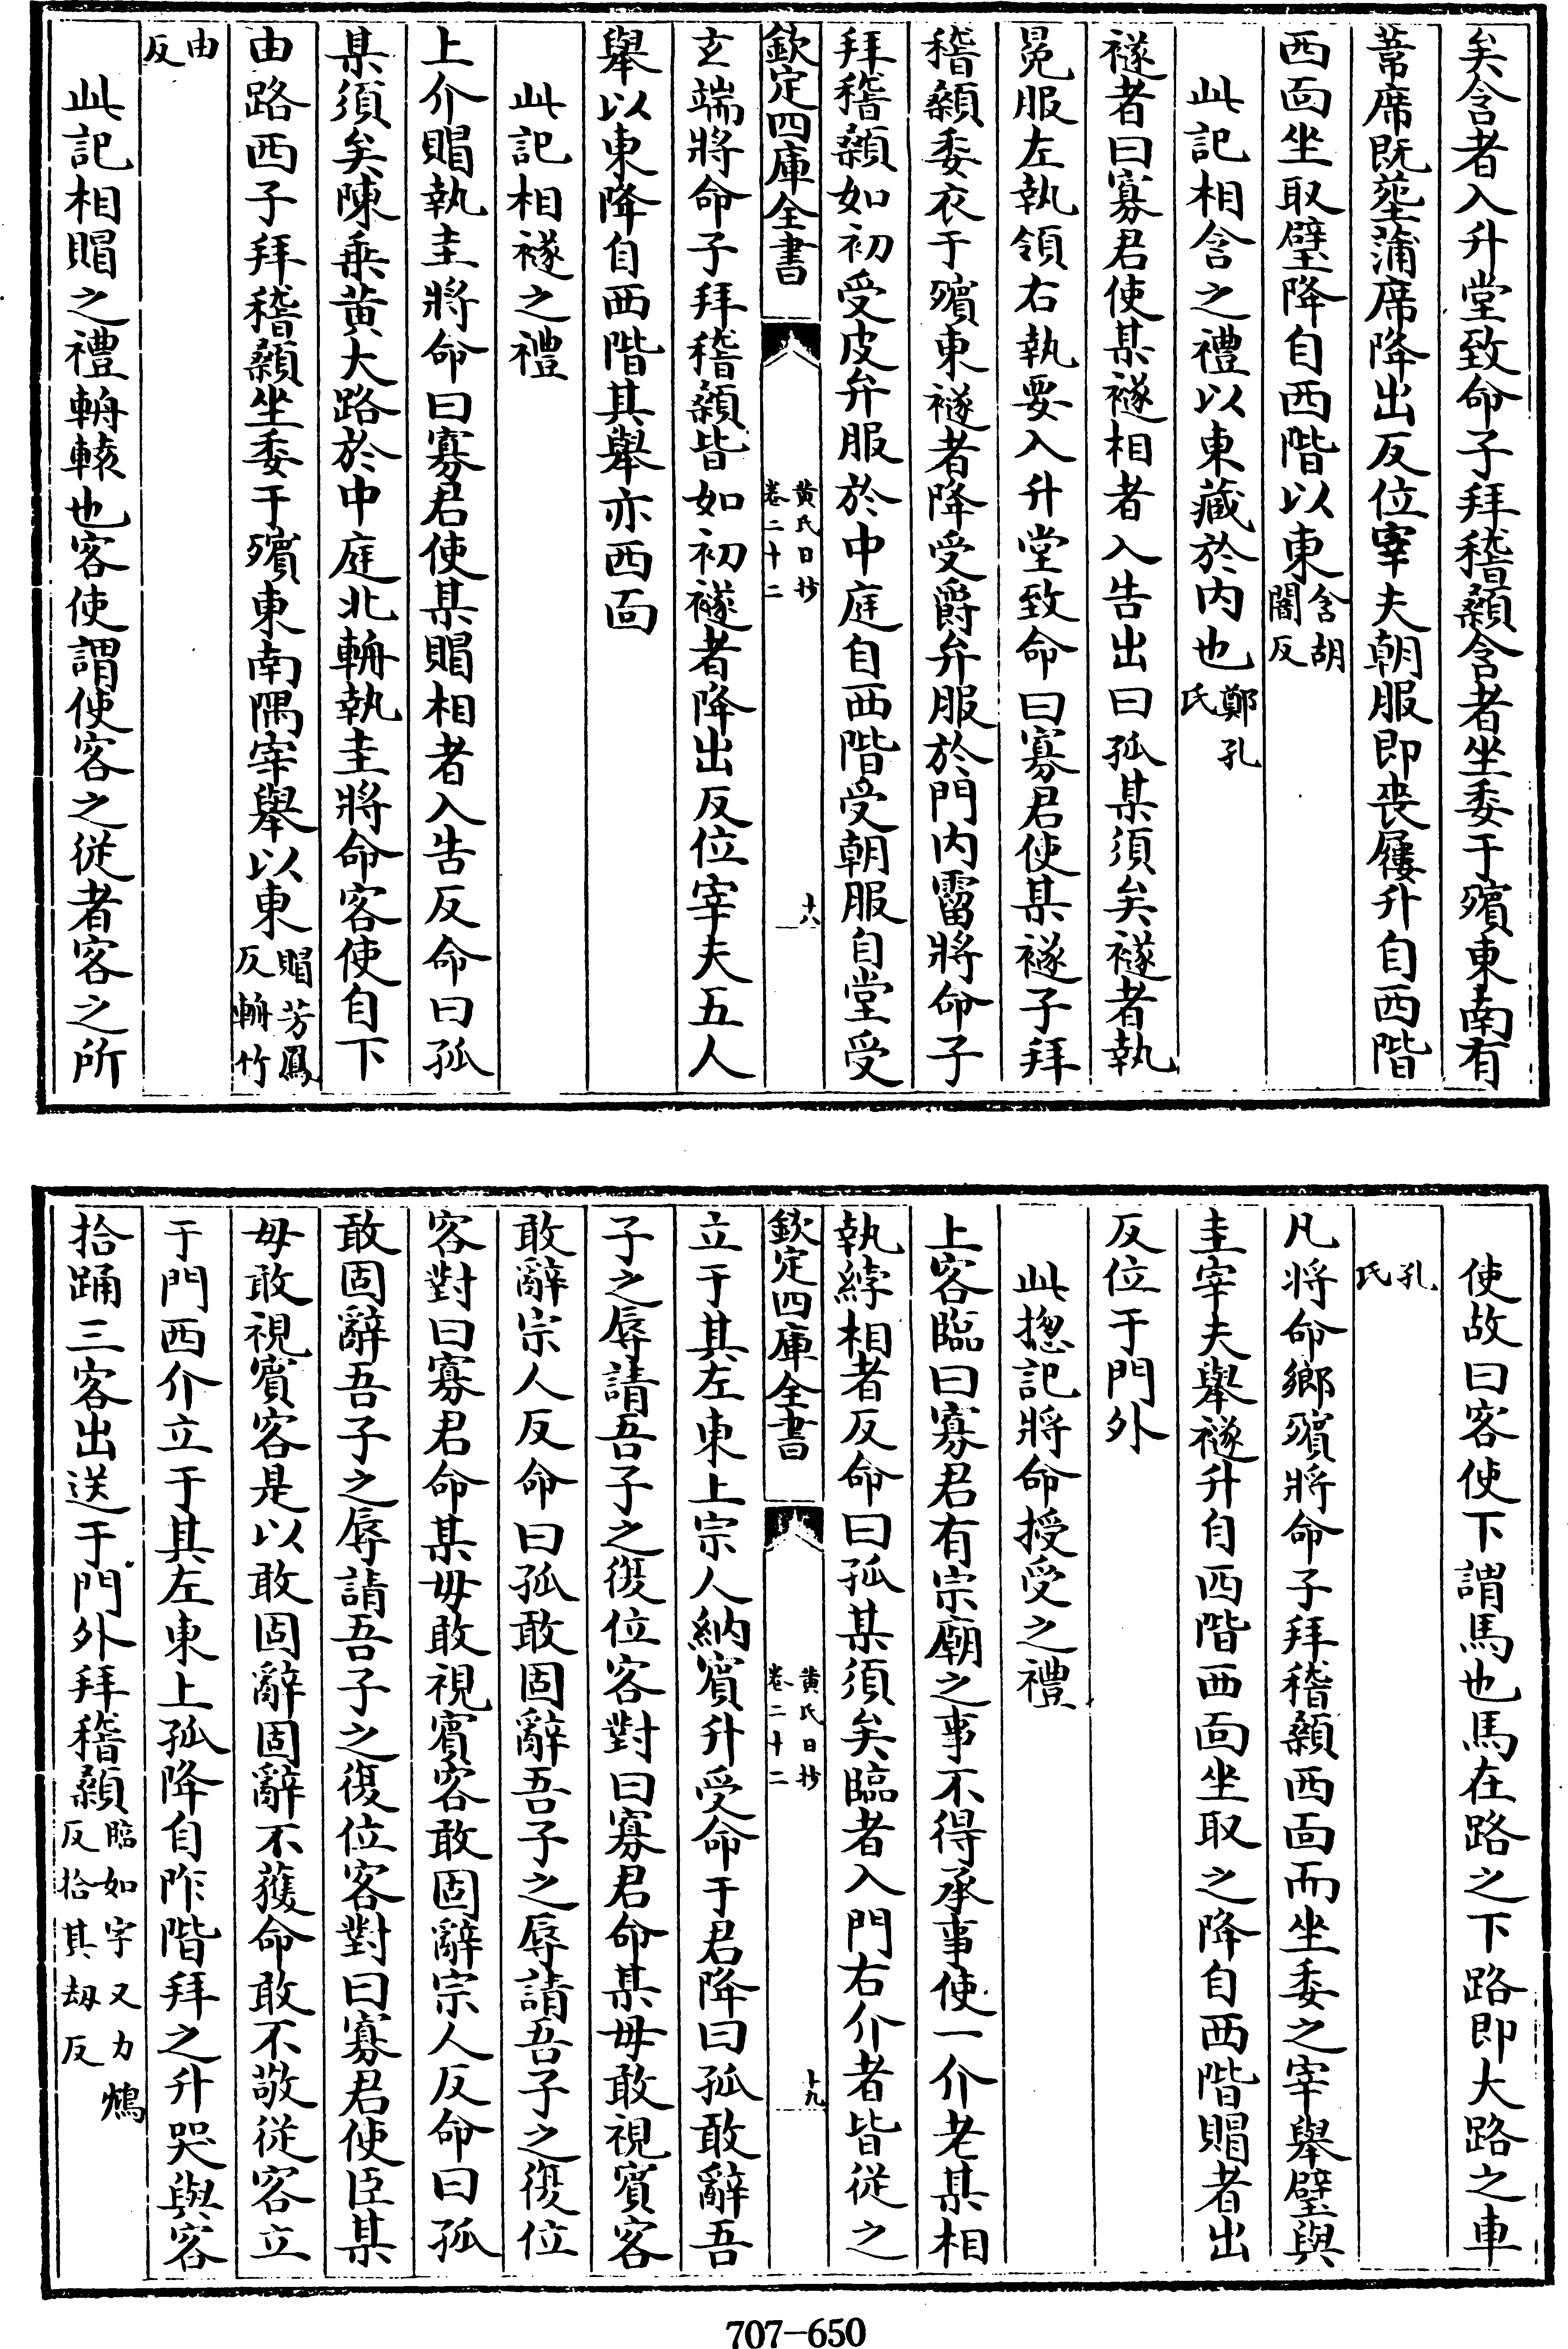 矣含者入升堂致命子拜稽顙含者坐委于殯東南有
葦席既葬蒲席降出反位宰夫朝服即喪屨升自西階
西面坐取璧降自西階以東含胡闇反
此記相含之禮以東藏於内也鄭氏孔
襚者曰寡君使某襚相者入告出曰孤某須矣襚者執
冕服左執領右執要入升堂致命曰寡君使某襚子拜
稽顙委衣于殯東襚者降受爵弁服於門内霤將命子
拜稽顙如初受皮弁服於中庭自西階受朝服自堂受
欽定四庫全書
黄氏日抄
卷二十二
十八
玄端將命子拜稽顙皆如初襚者降出反位宰夫五人
舉以東降自西階其舉亦西面
此記相襚之禮
上介賵執圭將命曰寡君使某賵相者入告反命曰孤
某須矣陳乗黄大路於中庭北輈執圭將命客使自下
由路西子拜稽顙坐委于殯東南隅宰舉以東賵芳鳳反輈竹
由反
此記相賵之禮輈轅也客使謂使客之従者客之所
使故曰客使下謂馬也馬在路之下路即大路之車
孔氏
凡將命鄉殯將命子拜稽顙西面而坐委之宰舉璧與
圭宰夫舉襚升自西階西面坐取之降自西階賵者出
反位于門外
此揔記將命授受之禮
上客臨曰寡君有宗廟之事不得承事使一介老某相
執綍相者反命曰孤某須矣臨者入門右介者皆従之
欽定四庫全書
黄氏日抄
卷二十二
十九
立于其左東上宗人納賓升受命于君降曰孤敢辭吾
子之辱請吾子之復位客對曰寡君命某毋敢視賓客
敢辭宗人反命曰孤敢固辭吾子之辱請吾子之復位
客對曰寡君命某毋敢視賓客敢固辭宗人反命曰孤
敢固辭吾子之辱請吾子之復位客對曰寡君使臣某
毋敢視賓客是以敢固辭固辭不獲命敢不敬従客立
于門西介立于其左東上孤降自阼階拜之升哭與客
拾踊三客出送于門外拜稽顙臨如字又力鴆反拾其刼反
707-650